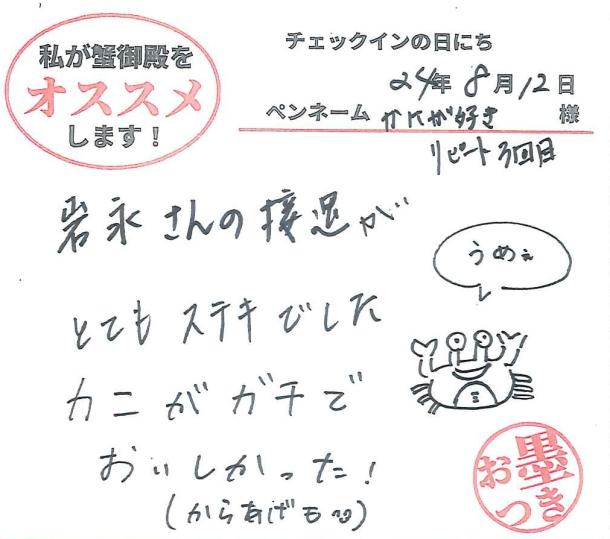 私が蟹御殿を
オススメ
します!
チェックインの日にち
24年8月12日
ペンネーム カニが好き 様
リピート3回目
岩永さんの接遇が
とてもステキでした
カニがガチで
おいしかった!
(からあげも)
うめぇ
お墨つき